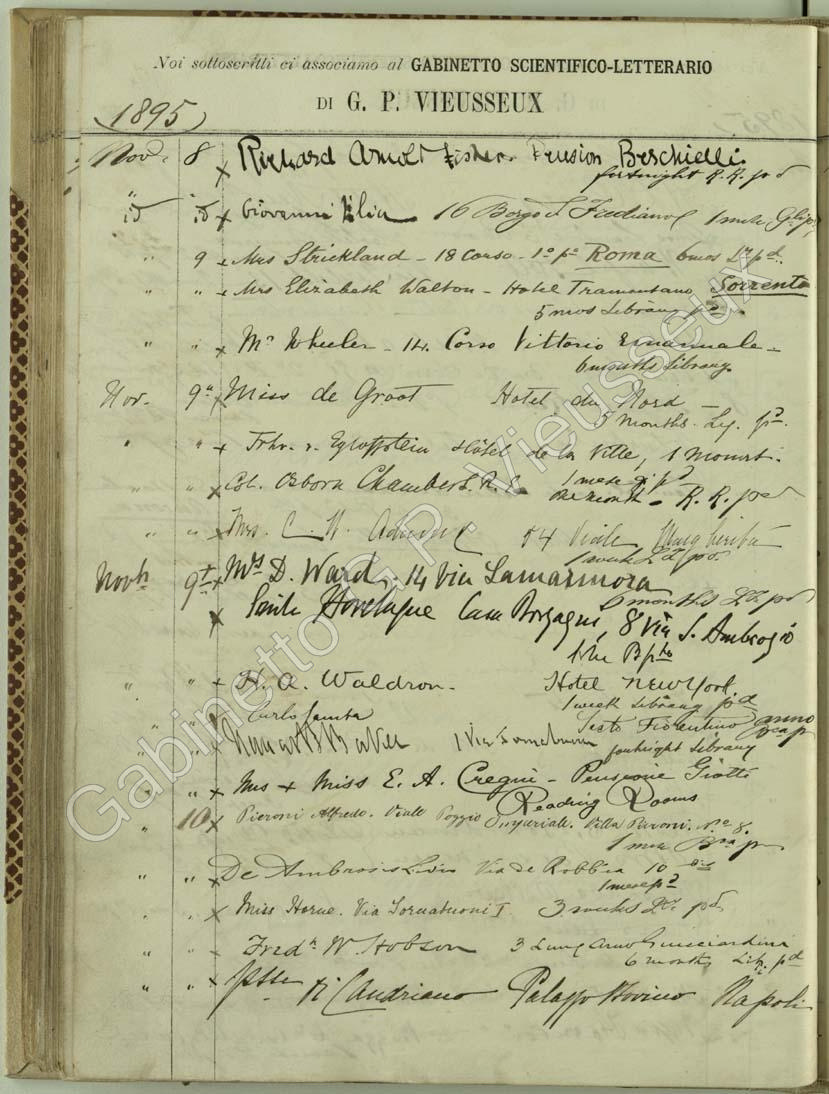 Noi sottoscritti ci associamo al GABINETTO SCIENTIFICO-LETTERARIO
DI G. P. VIEUSSEUX
1895
Nov. 8 x Richard Arnold Fisher. Pension Beschielli
fortnight R. R. pd
" id id x Giovanni Elia 16 Borgo S. Frediano 1 mese
" 9 x Mrs Strickland - 18 Corso - 1o po Roma 6mos pd.
" " x Mrs Elizabeth Walton - Hotel Tramontano Sorrento
5 mos Library pd.
" " x Mr Wheeler - 14. Corso Vittorio Emanuele -
6 months Library.
Nov. 9 x Miss de Groot Hotel du Nord -
5 months. Ly. pd.
" " x Frhr. v. Egloffstein Hôtel de la Ville, 1 Monat.
1 mese pd
x Col. Osborn Chambers R. E. one month - R. R. pd
" " x Mrs. C. W. 54 Viale Margherita
1 week pd.
Novbr 9th x Mrs D. Ward, 14 Via Lamarmora
6 months pd
x Emile Hovelaque Casa 8 Via S. Ambrogio
" " x H. A. Waldron. Hotel New York
1 week Library pd
" " Carlo Sesto Fiorentino anno
" " x Baker 1 Via Tornabuoni fortnight Library
" " x Mrs & Miss E. A. Pensione Giotto
Reading Rooms
" 10 x Pieroni Alfredo. Viale Poggio Imperiale. Villa No 8.
1 mese
" " x De Ambrosis Via de Robbia 10 bis
1 mese pd
" " x Miss Horne. Via Tornabuoni I 3 weeks pd
" " x Fredk W Hobson 3 Lung Arno Guicciardini
6 months Lib. pd
" " x Candriano Palazzo Napoli
Gabinetto G.P. Vieusseux